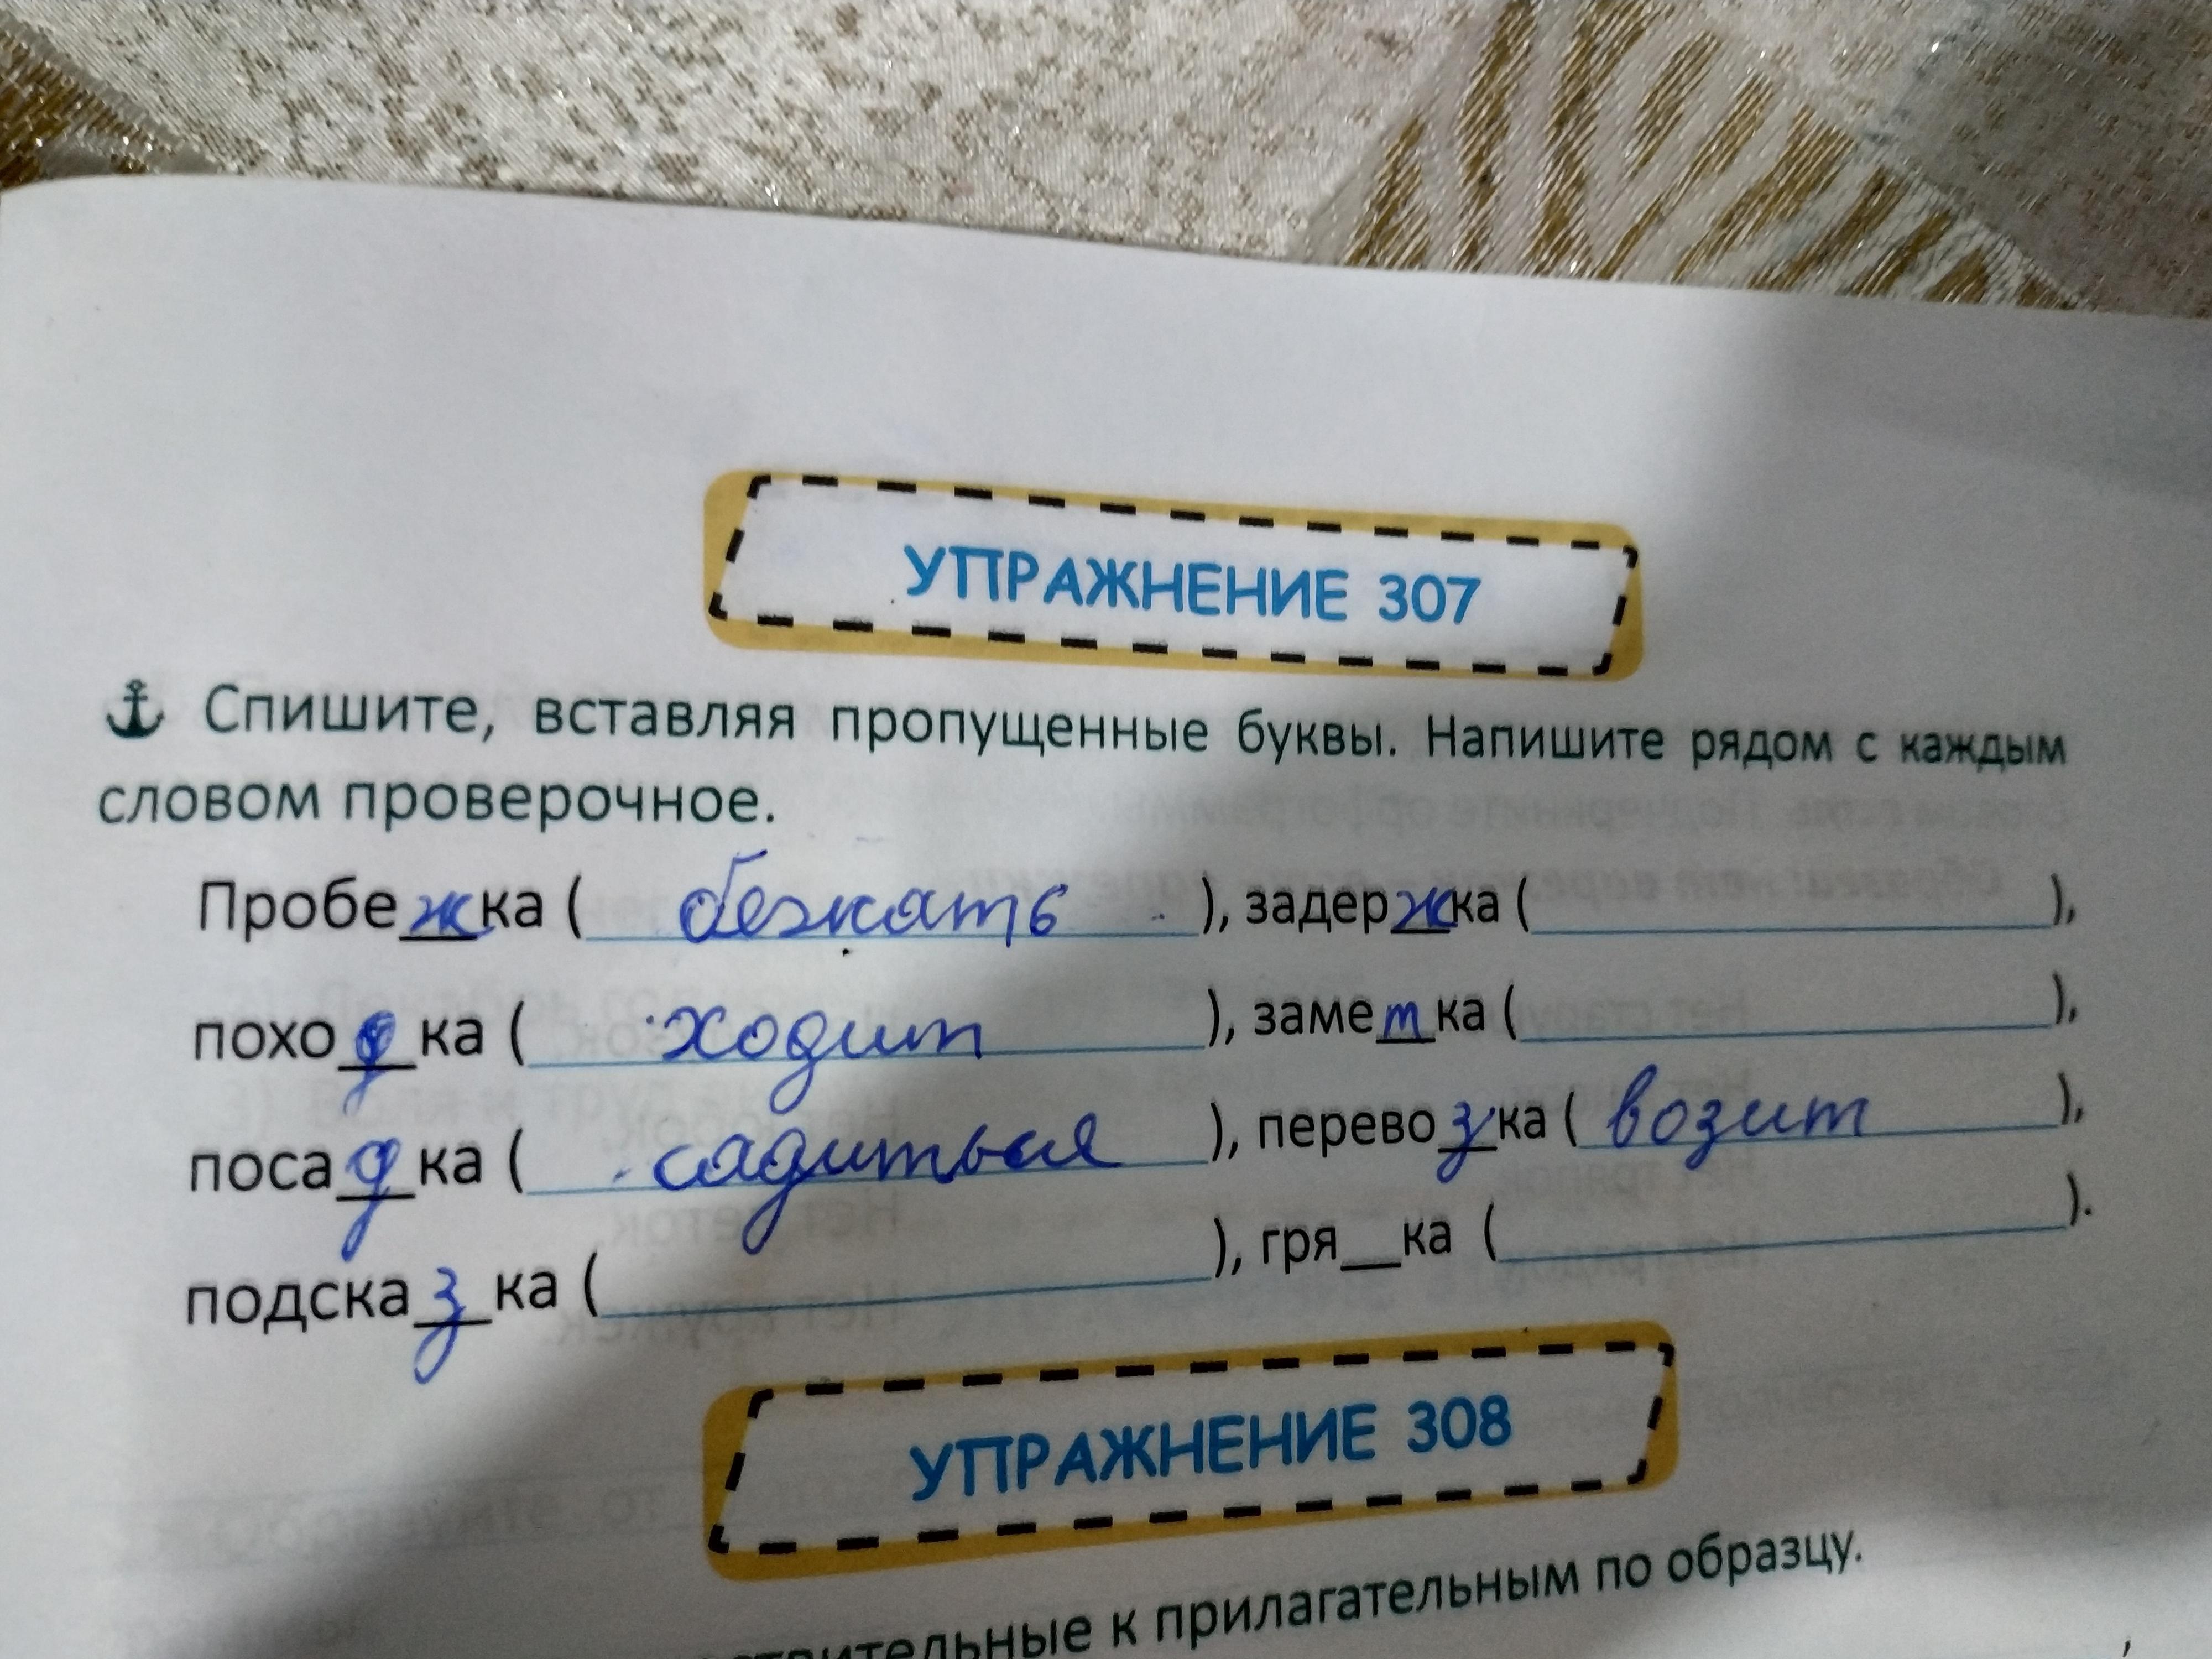 УПРАЖНЕНИЕ 307
Спишите, вставляя пропущенные буквы. Напишите рядом с каждым
словом проверочное.
Пробежка ( бежать ), задержка ( ),
походка ( ходит ), заметка ( ),
посадка ( садиться ), перевозка ( возит ),
подсказка ( ), гря__ка ( ).
УПРАЖНЕНИЕ 308
к прилагательным по образцу.